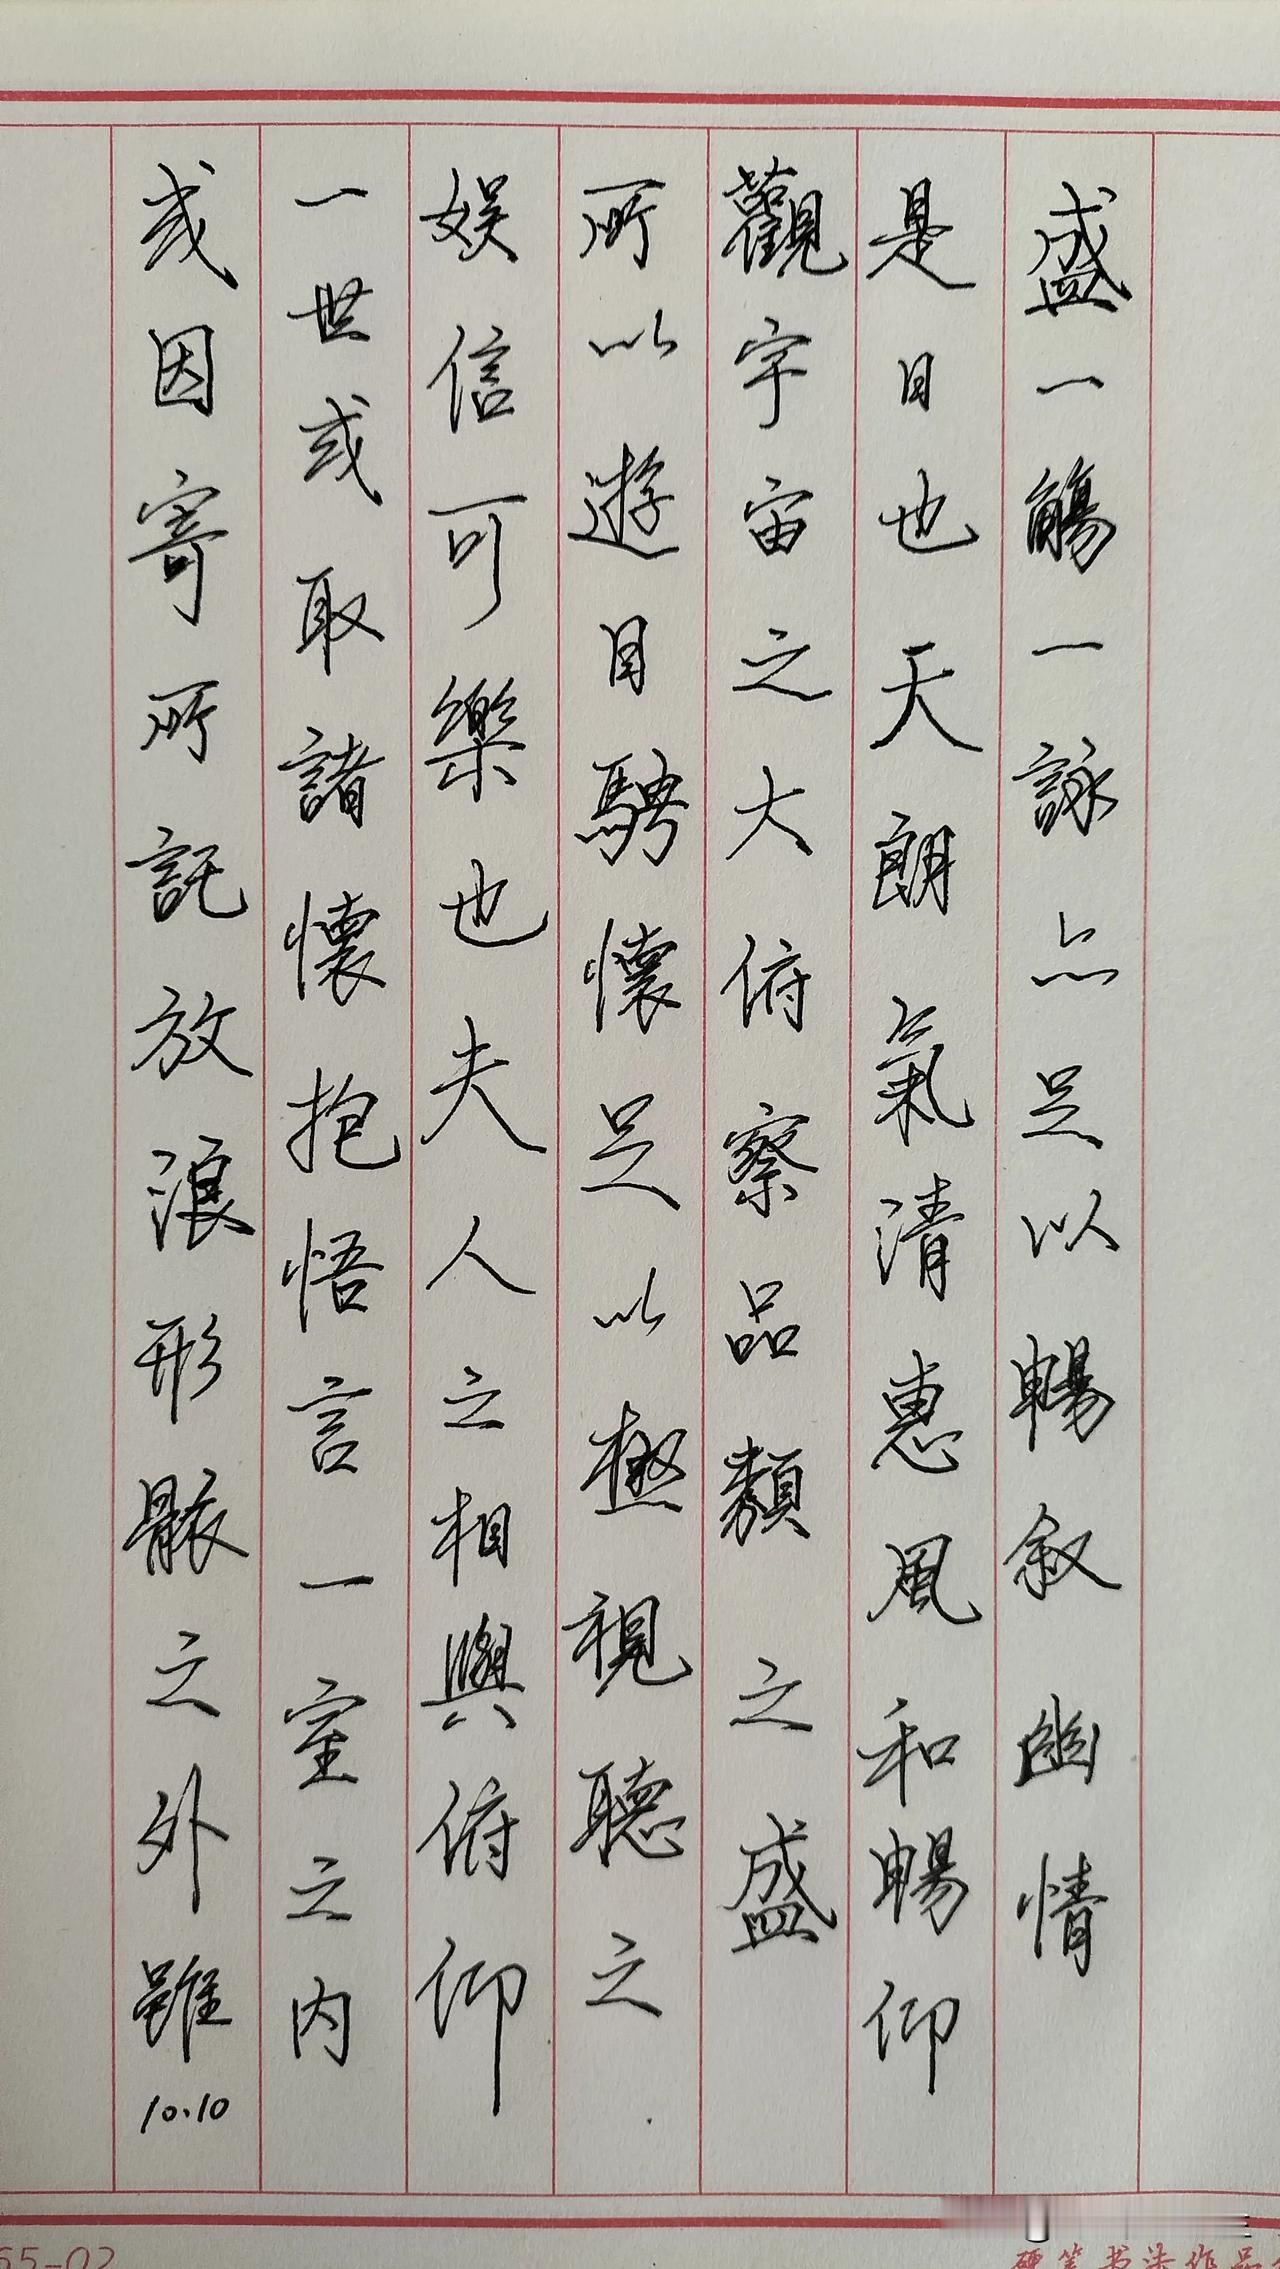 盛一觴一詠亦足以暢叙幽情
是日也天朗氣清惠風和暢仰
觀宇宙之大俯察品類之盛
所以遊目騁懷足以極視聽之
娱信可樂也夫人之相與俯仰
一世或取諸懷抱悟言一室之内
或因寄所託放浪形骸之外雖
10.10
65-02
硬笔书法作品